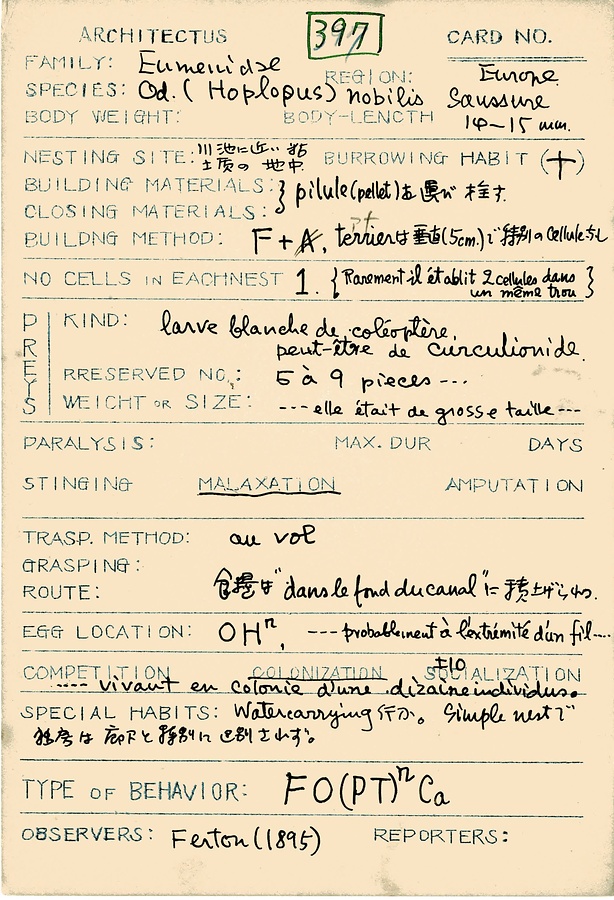 ARCHITECTUS 397 CARD NO.
FAMILY: Eumenidae REGION: Europe
SPECIES: Od. (Hoplopus) nobilis Saussure
BODY WEIGHT: BODY-LENGTH 14~15 mm.
NESTING SITE: 川池に近い
土質の地中 BURROWING HABIT (+)
BUILDING MATERIALS: } pilule (pellet)を運び 栓す.
CLOSING MATERIALS:
BUILDNG METHOD: F+A, terrierは垂直(5cm.)で特別のcelluleなし
NO CELLS IN EACHNEST 1. { Rarement il établit 2 cellules dans
un même trou }
PREYS
KIND: larve blanche de coléoptère,
peut-être de curculionide.
RRESERVED NO.: 5 à 9 pieces ---
WEICHT OR SIZE: --- elle était de grosse taille ---
PARALYSIS: MAX. DUR DAYS
STINGING MALAXATION AMPUTATION
TRASP. METHOD: au vol
GRASPING:
ROUTE: 食糧は "dans le fond du canal" に積上げられ.
EGG LOCATION: OHⁿ, --- probablement à l'extrémité d'un fil ---
COMPETITION COLONIZATION ±10 SOCIALIZATION
---- vivant en colonie d'une dizaine individus.
SPECIAL HABITS: Water carrying 行か。 Simple nestで
は 廊下と特別に区別されず。
TYPE OF BEHAVIOR: FO(PT)ⁿCa
OBSERVERS: Ferton (1895) REPORTERS: